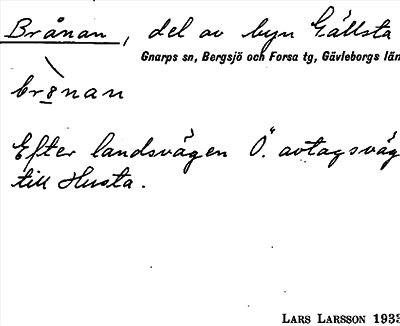 Brånan, del av byn Gällsta
Gnarps sn, Bergsjö och Forsa tg, Gävleborgs län
brånan
Efter landsvägen Ö. avtagsväg
till Husta.
LARS LARSSON 1933